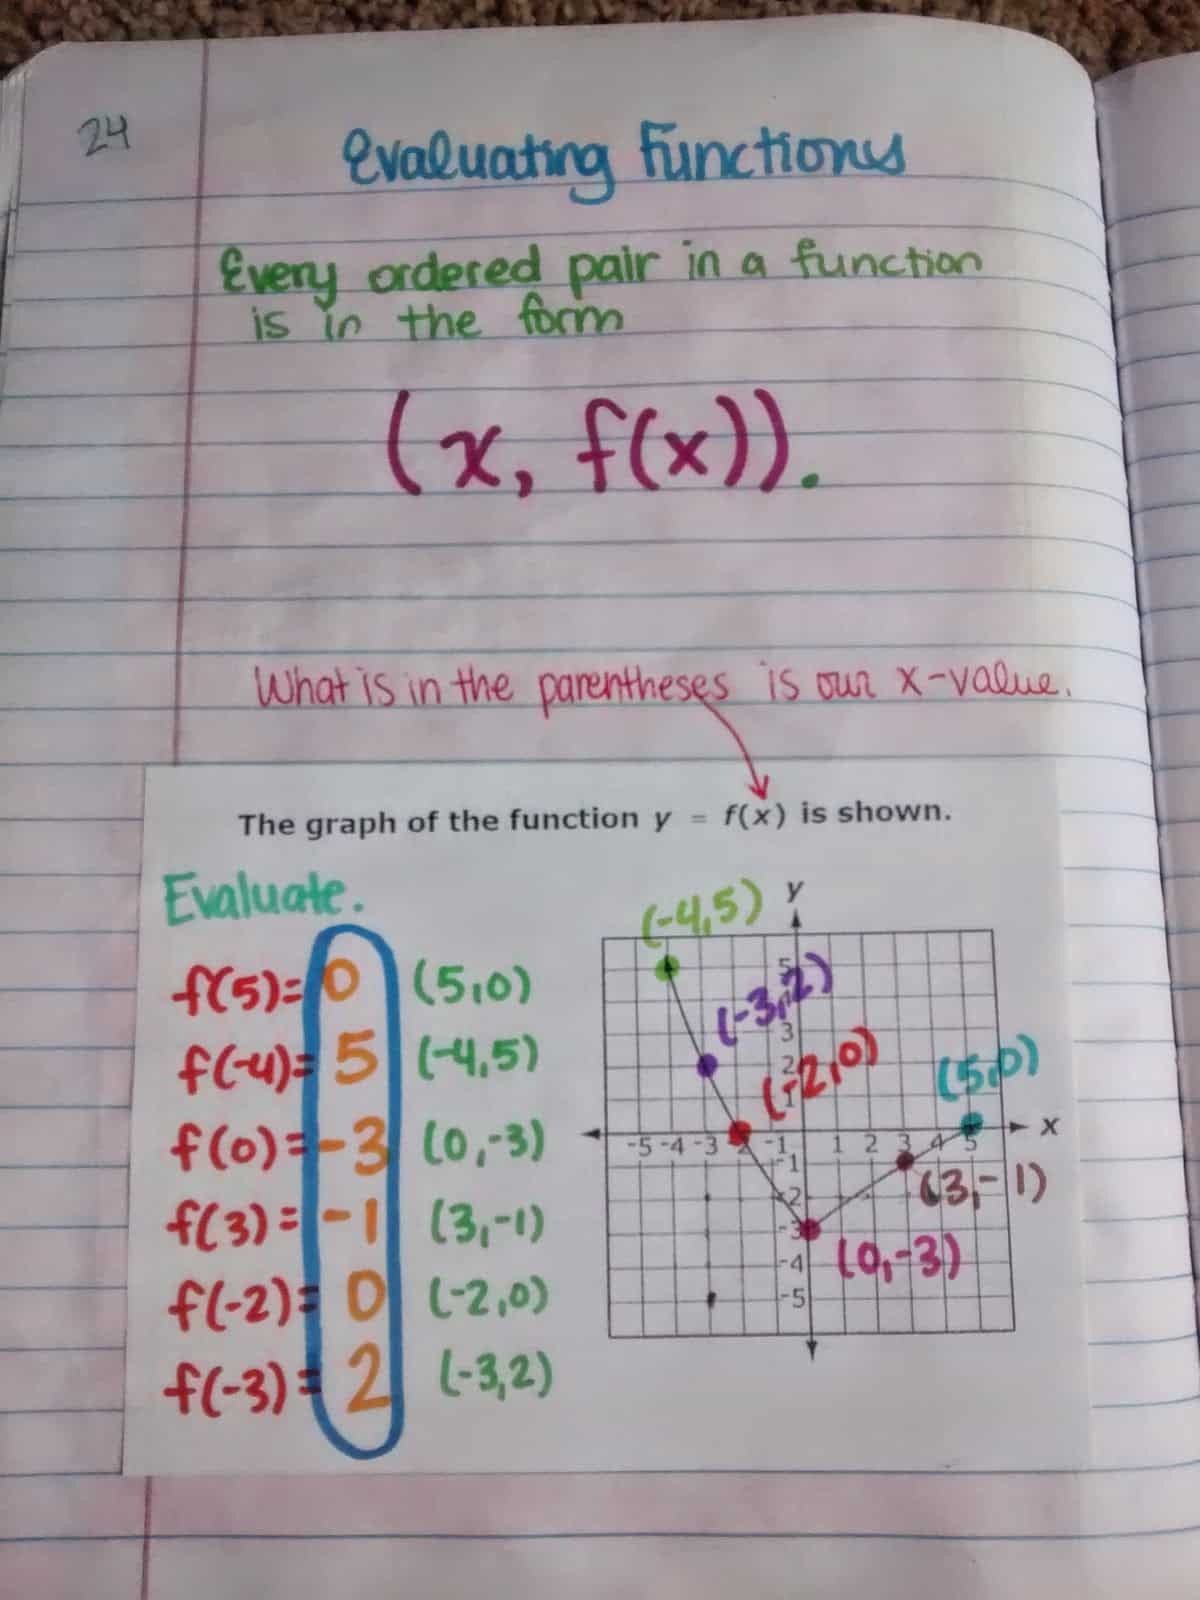 24
Evaluating Functions
Every ordered pair in a function
is in the form
(x, f(x)).
What is in the parentheses is our x-value.
The graph of the function y = f(x) is shown.
Evaluate.
f(5)= 0 (5,0)
f(-4)= 5 (-4,5)
f(0)= -3 (0,-3)
f(3)= -1 (3,-1)
f(-2)= 0 (-2,0)
f(-3)= 2 (-3,2)
y
(-4,5)
5
(-3,2)
3
2
(-2,0)
1
(5,0)
x
-5 -4 -3 -2 -1 1 2 3 4 5
-1
(3,-1)
-2
-3
(0,-3)
-4
-5